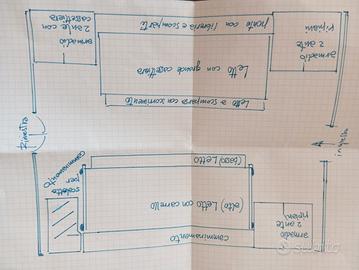 ponte con libreria e scomparti
armadio
2 ante con
cassettiera
armadio
2 ante
ripiani
Letto con grande cassettiera
Letto a scomparsa con scorrimento
Finestra
ingresso
(basso) Letto
(alto) Letto con carrello
camminamento
camminamento
scaletta
per
armadio
2 ante
ripiani
Subito.it